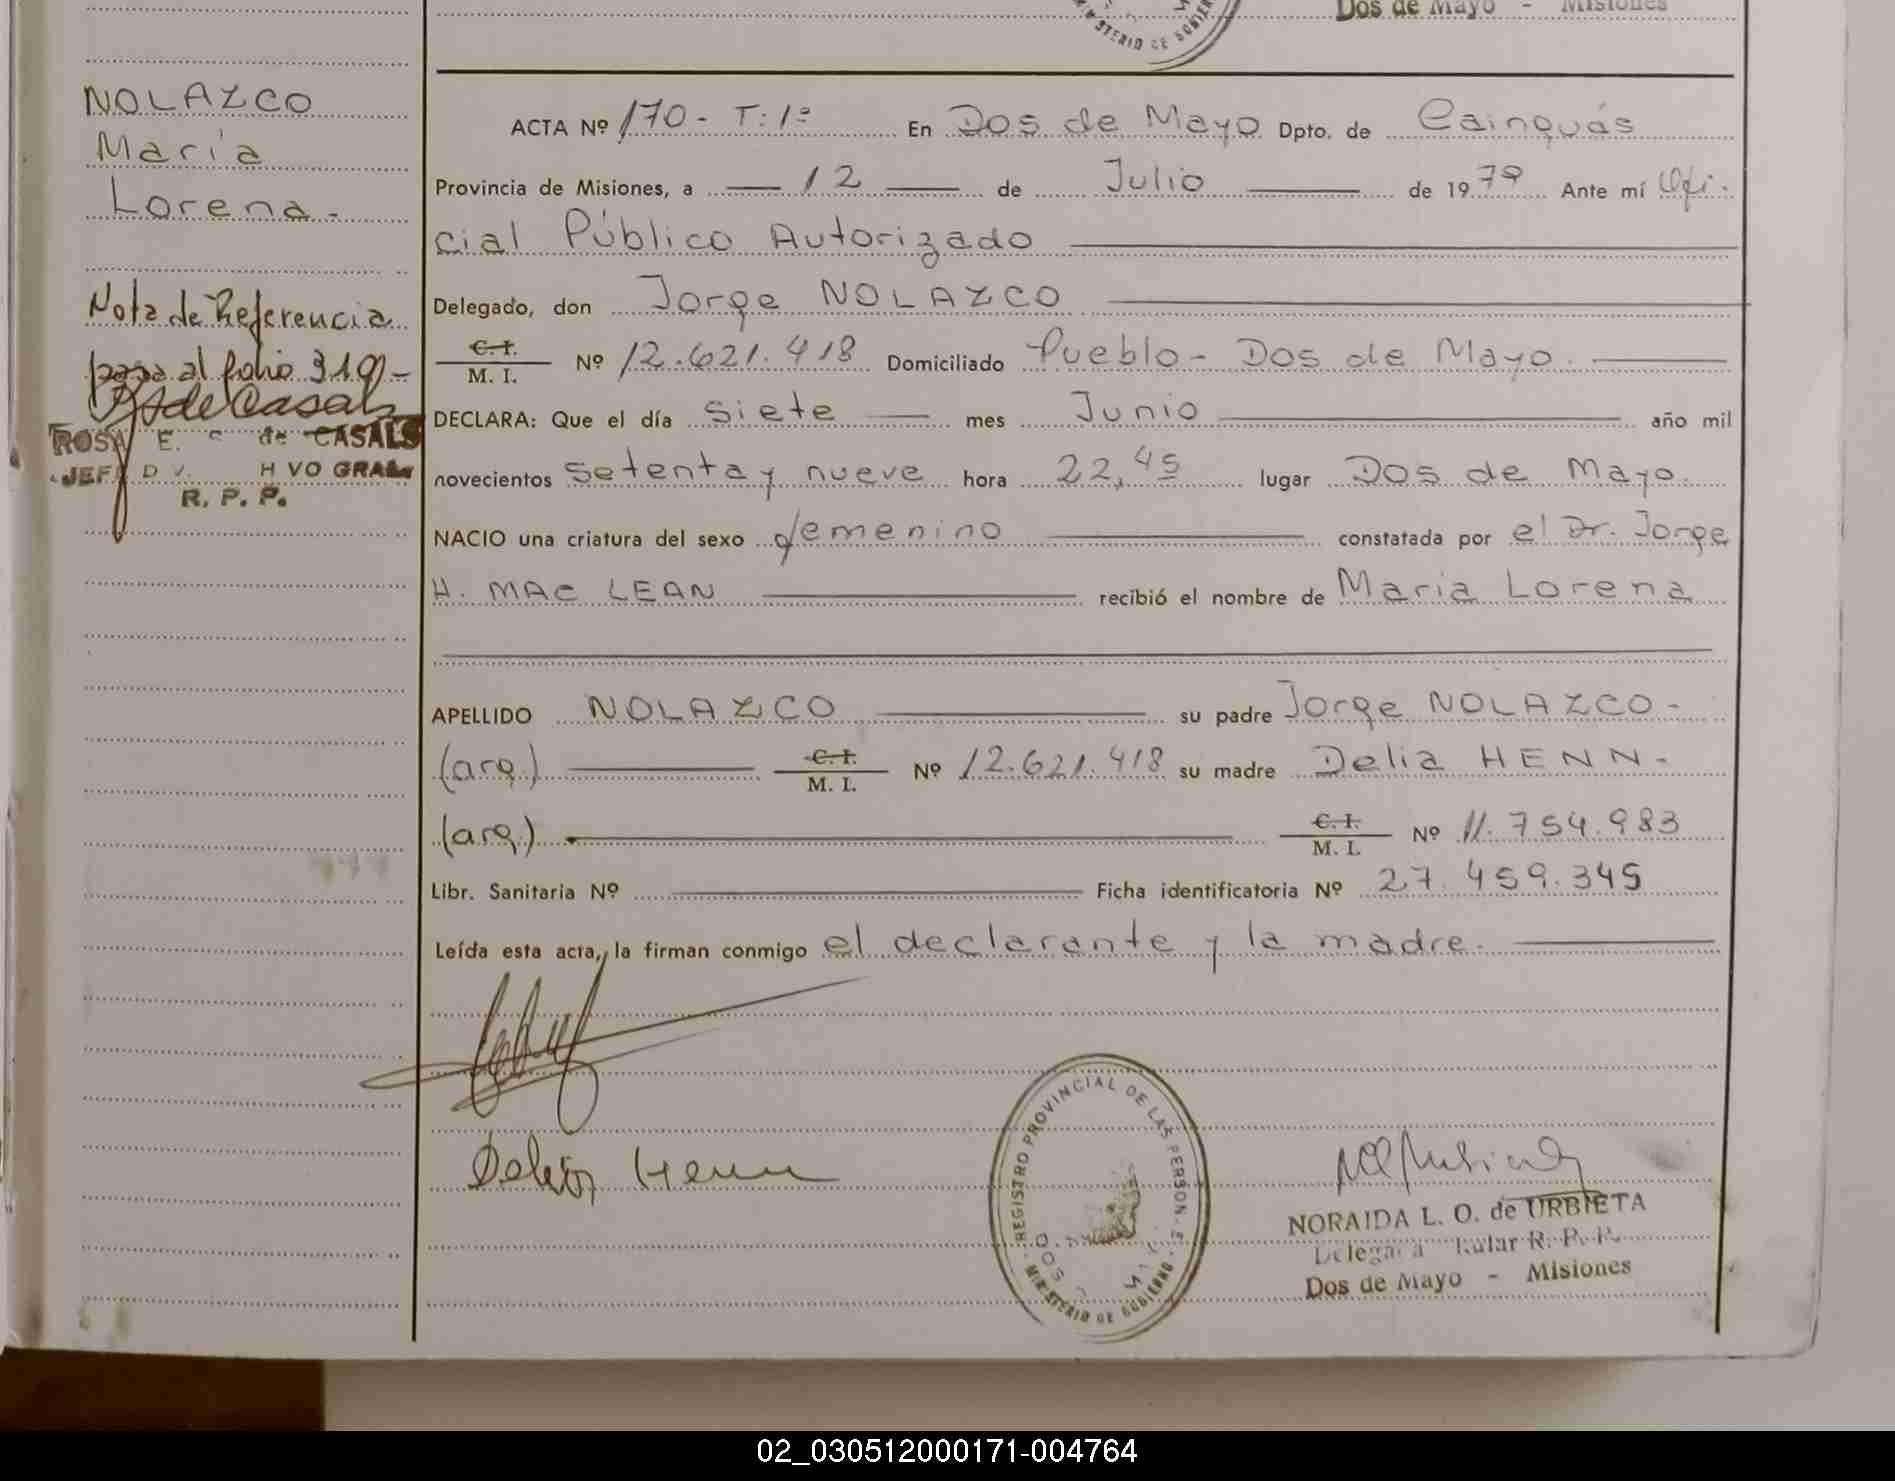 Dos de Mayo - Misiones
MINISTERIO DE GOBIERNO
NOLAZCO
María
Lorena.-
Nota de Referencia
pasa al folio 319-
ROSA E. de CASALS
JEF
R. P. P.
ACTA Nº 170 - T: 1º En Dos de Mayo Dpto. de Cainguás
Provincia de Misiones, a — 12 — de Julio — de 1979 Ante mí Ofi-
cial Público Autorizado —
Delegado, don Jorge NOLAZCO —
C. I. / M. I. Nº 12.621.418 Domiciliado Pueblo - Dos de Mayo. —
DECLARA: Que el día siete — mes Junio — año mil
novecientos setenta y nueve hora 22,45 lugar Dos de Mayo.
NACIO una criatura del sexo femenino — constatada por el Dr. Jorge
H. MAC LEAN — recibió el nombre de María Lorena
APELLIDO NOLAZCO — su padre Jorge NOLAZCO-
(arg.) — C. I. / M. I. Nº 12.621.418 su madre Delia HENN-
(arg.) — C. I. / M. I. Nº 11.754.983
Libr. Sanitaria Nº — Ficha identificatoria Nº 27.459.345
Leída esta acta, la firman conmigo el declarante y la madre. —
Delia Henn
REGISTRO PROVINCIAL DE LAS PERSON
MINISTERIO DE GOBIERNO
NORAIDA L. O. de URBIETA
R. P. P.
Dos de Mayo - Misiones
02_030512000171-004764